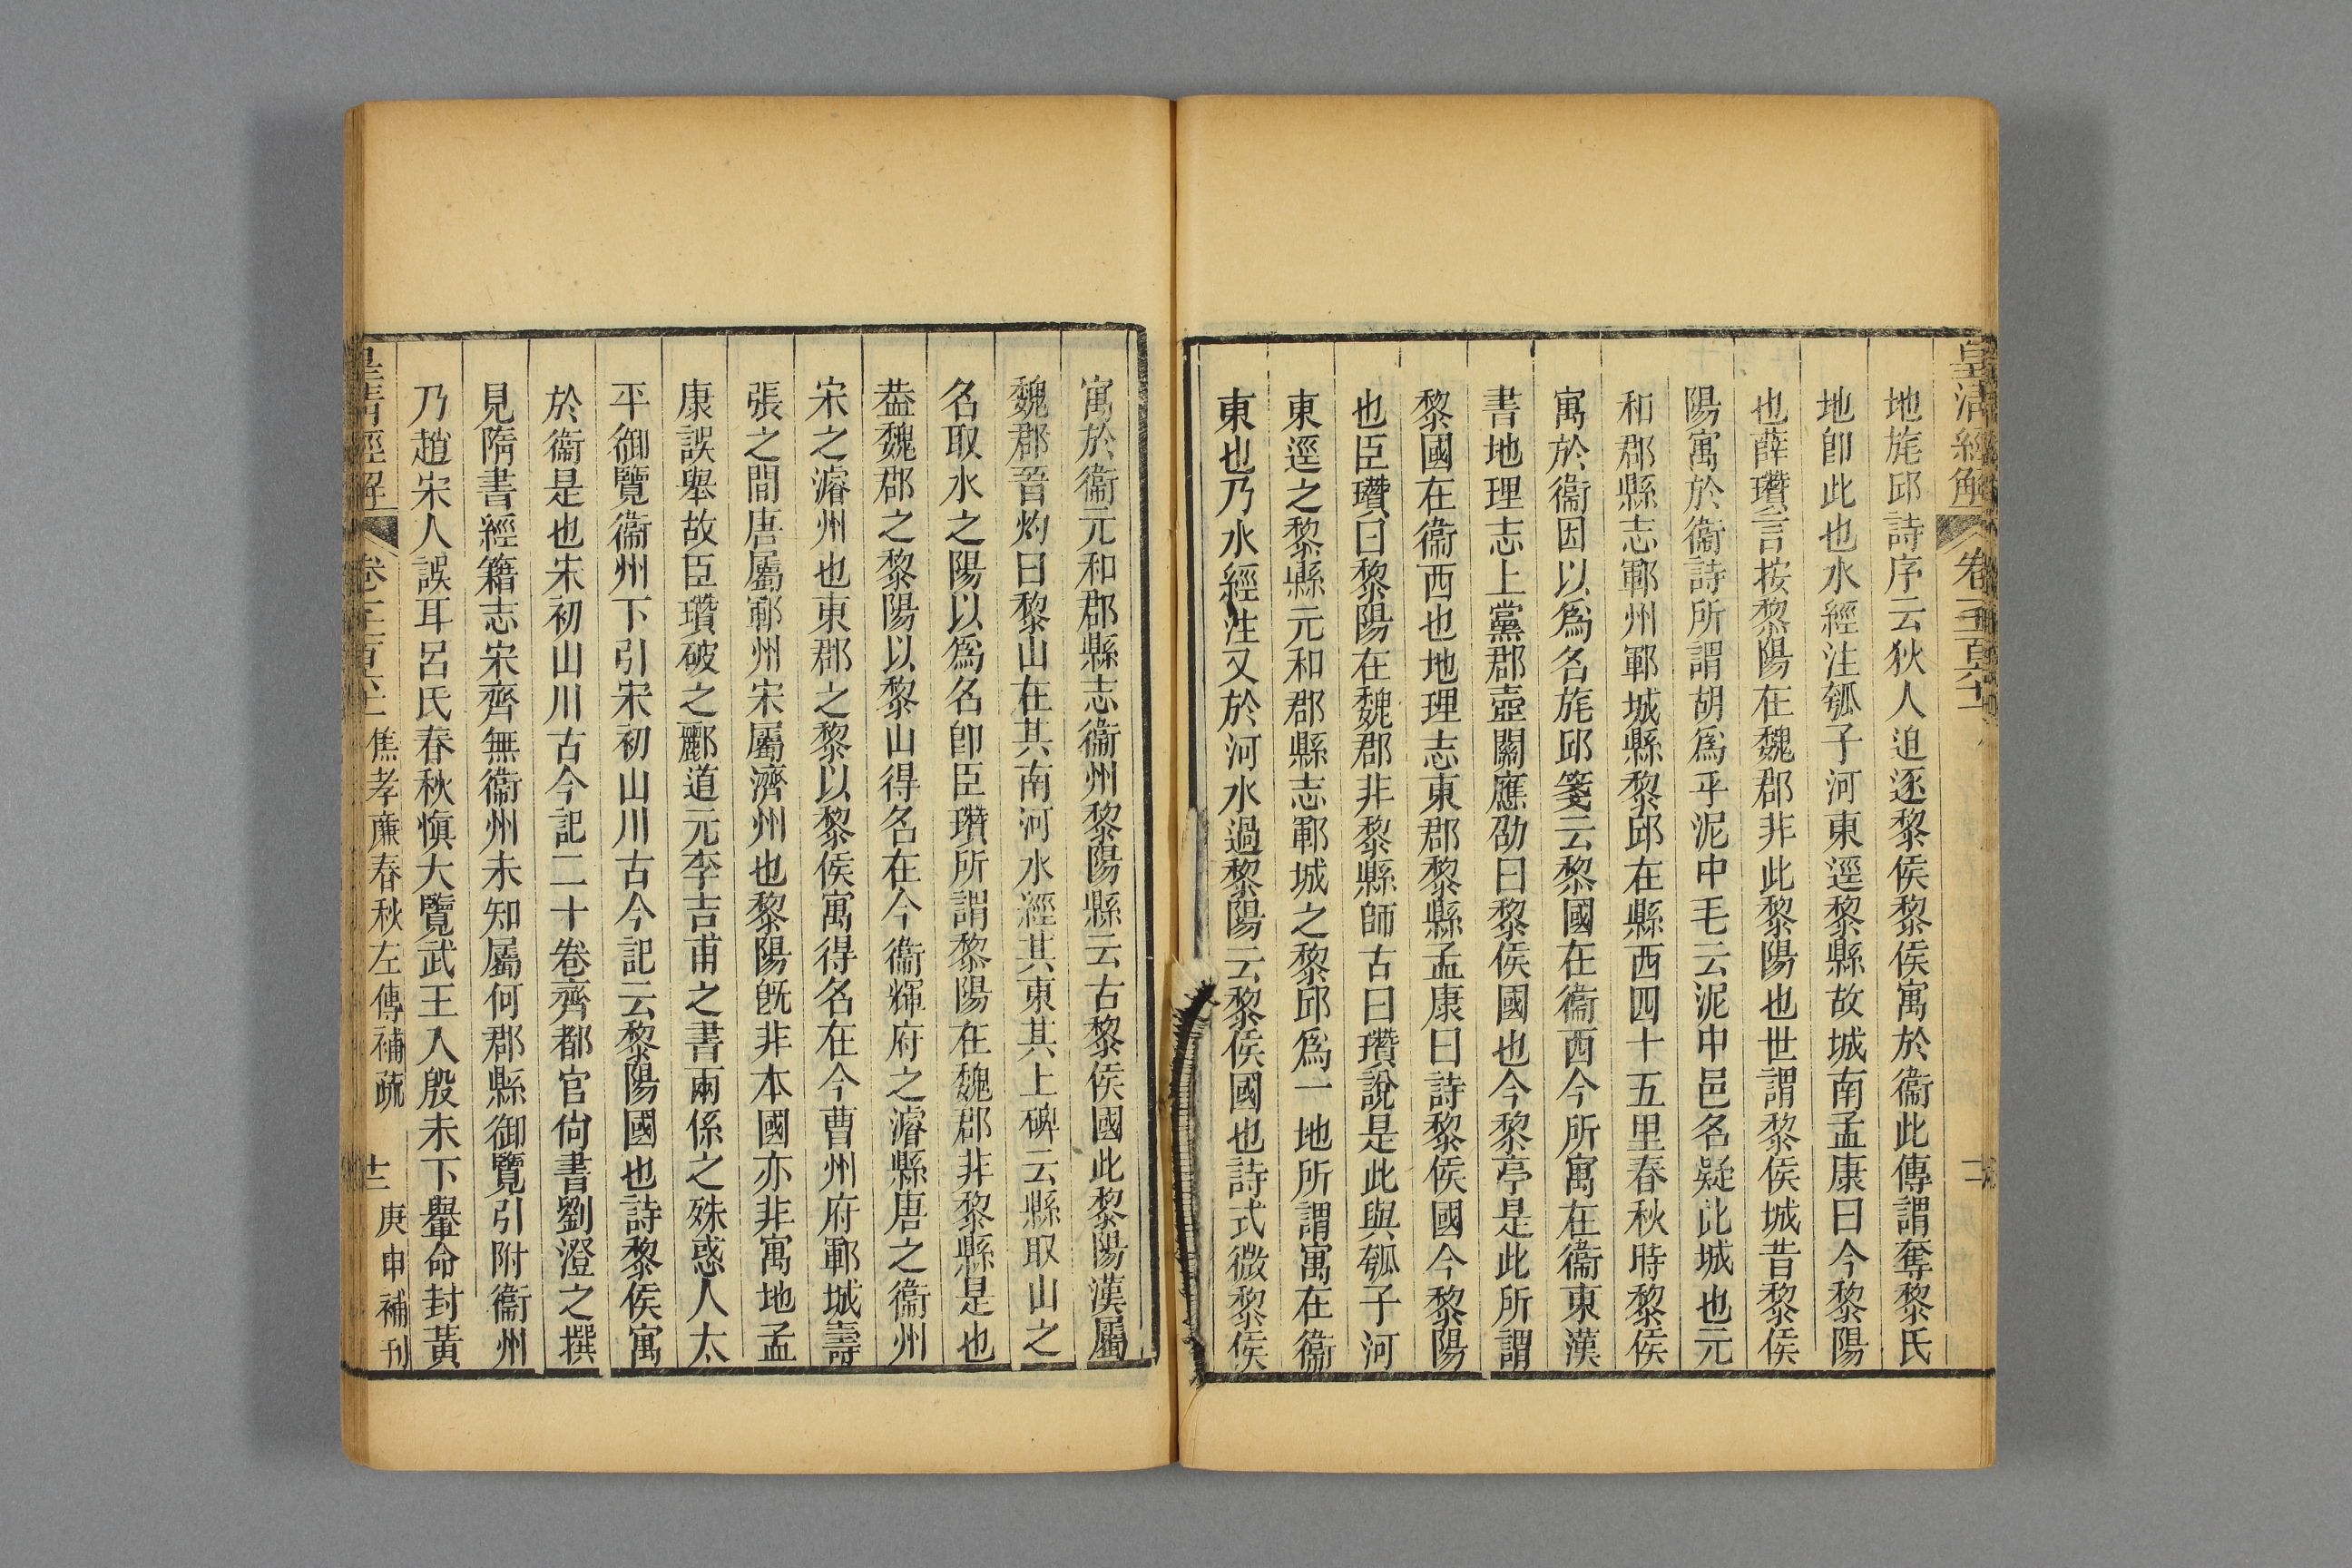 皇清經解
卷一千一百六十一
地旄邱詩序云狄人迫逐黎侯黎侯寓於衞此傳謂奪黎氏
地卽此也水經注瓠子河東逕黎縣故城南孟康曰今黎陽
也薛瓚言按黎陽在魏郡非此黎陽也世謂黎侯城昔黎侯
陽寓於衞詩所謂胡爲乎泥中毛云泥中邑名疑此城也元
和郡縣志鄆州鄆城縣黎邱在縣西四十五里春秋時黎侯
寓於衞因以爲名旄邱箋云黎國在衞西今所寓在衞東漢
書地理志上黨郡壺關應劭曰黎侯國也今黎亭是此所謂
黎國在衞西也地理志東郡黎縣孟康曰詩黎侯國今黎陽
也臣瓚曰黎陽在魏郡非黎縣師古曰瓚說是此與瓠子河
東逕之黎縣元和郡縣志鄆城之黎邱爲一地所謂寓在衞
東也乃水經注又於河水過黎陽云黎侯國也詩式微黎侯
寓於衞元和郡縣志衞州黎陽縣云古黎侯國此黎陽漢屬
魏郡晉灼曰黎山在其南河水經其東其上碑云縣取山之
名取水之陽以爲名卽臣瓚所謂黎陽在魏郡非黎縣是也
葢魏郡之黎陽以黎山得名在今衞輝府之濬縣唐之衞州
宋之濬州也東郡之黎以黎侯寓得名在今曹州府鄆城壽
張之閒唐屬鄆州宋屬濟州也黎陽旣非本國亦非寓地孟
康誤舉故臣瓚破之酈道元李吉甫之書兩係之殊惑人太
平御覽衞州下引宋初山川古今記云黎陽國也詩黎侯寓
於衞是也宋初山川古今記二十卷齊都官尙書劉澄之撰
見隋書經籍志宋齊無衞州未知屬何郡縣御覽引附衞州
乃趙宋人誤耳呂氏春秋愼大覽武王入殷未下轝命封黃
皇清經解
焦孝廉春秋左傳補疏
庚申補刊